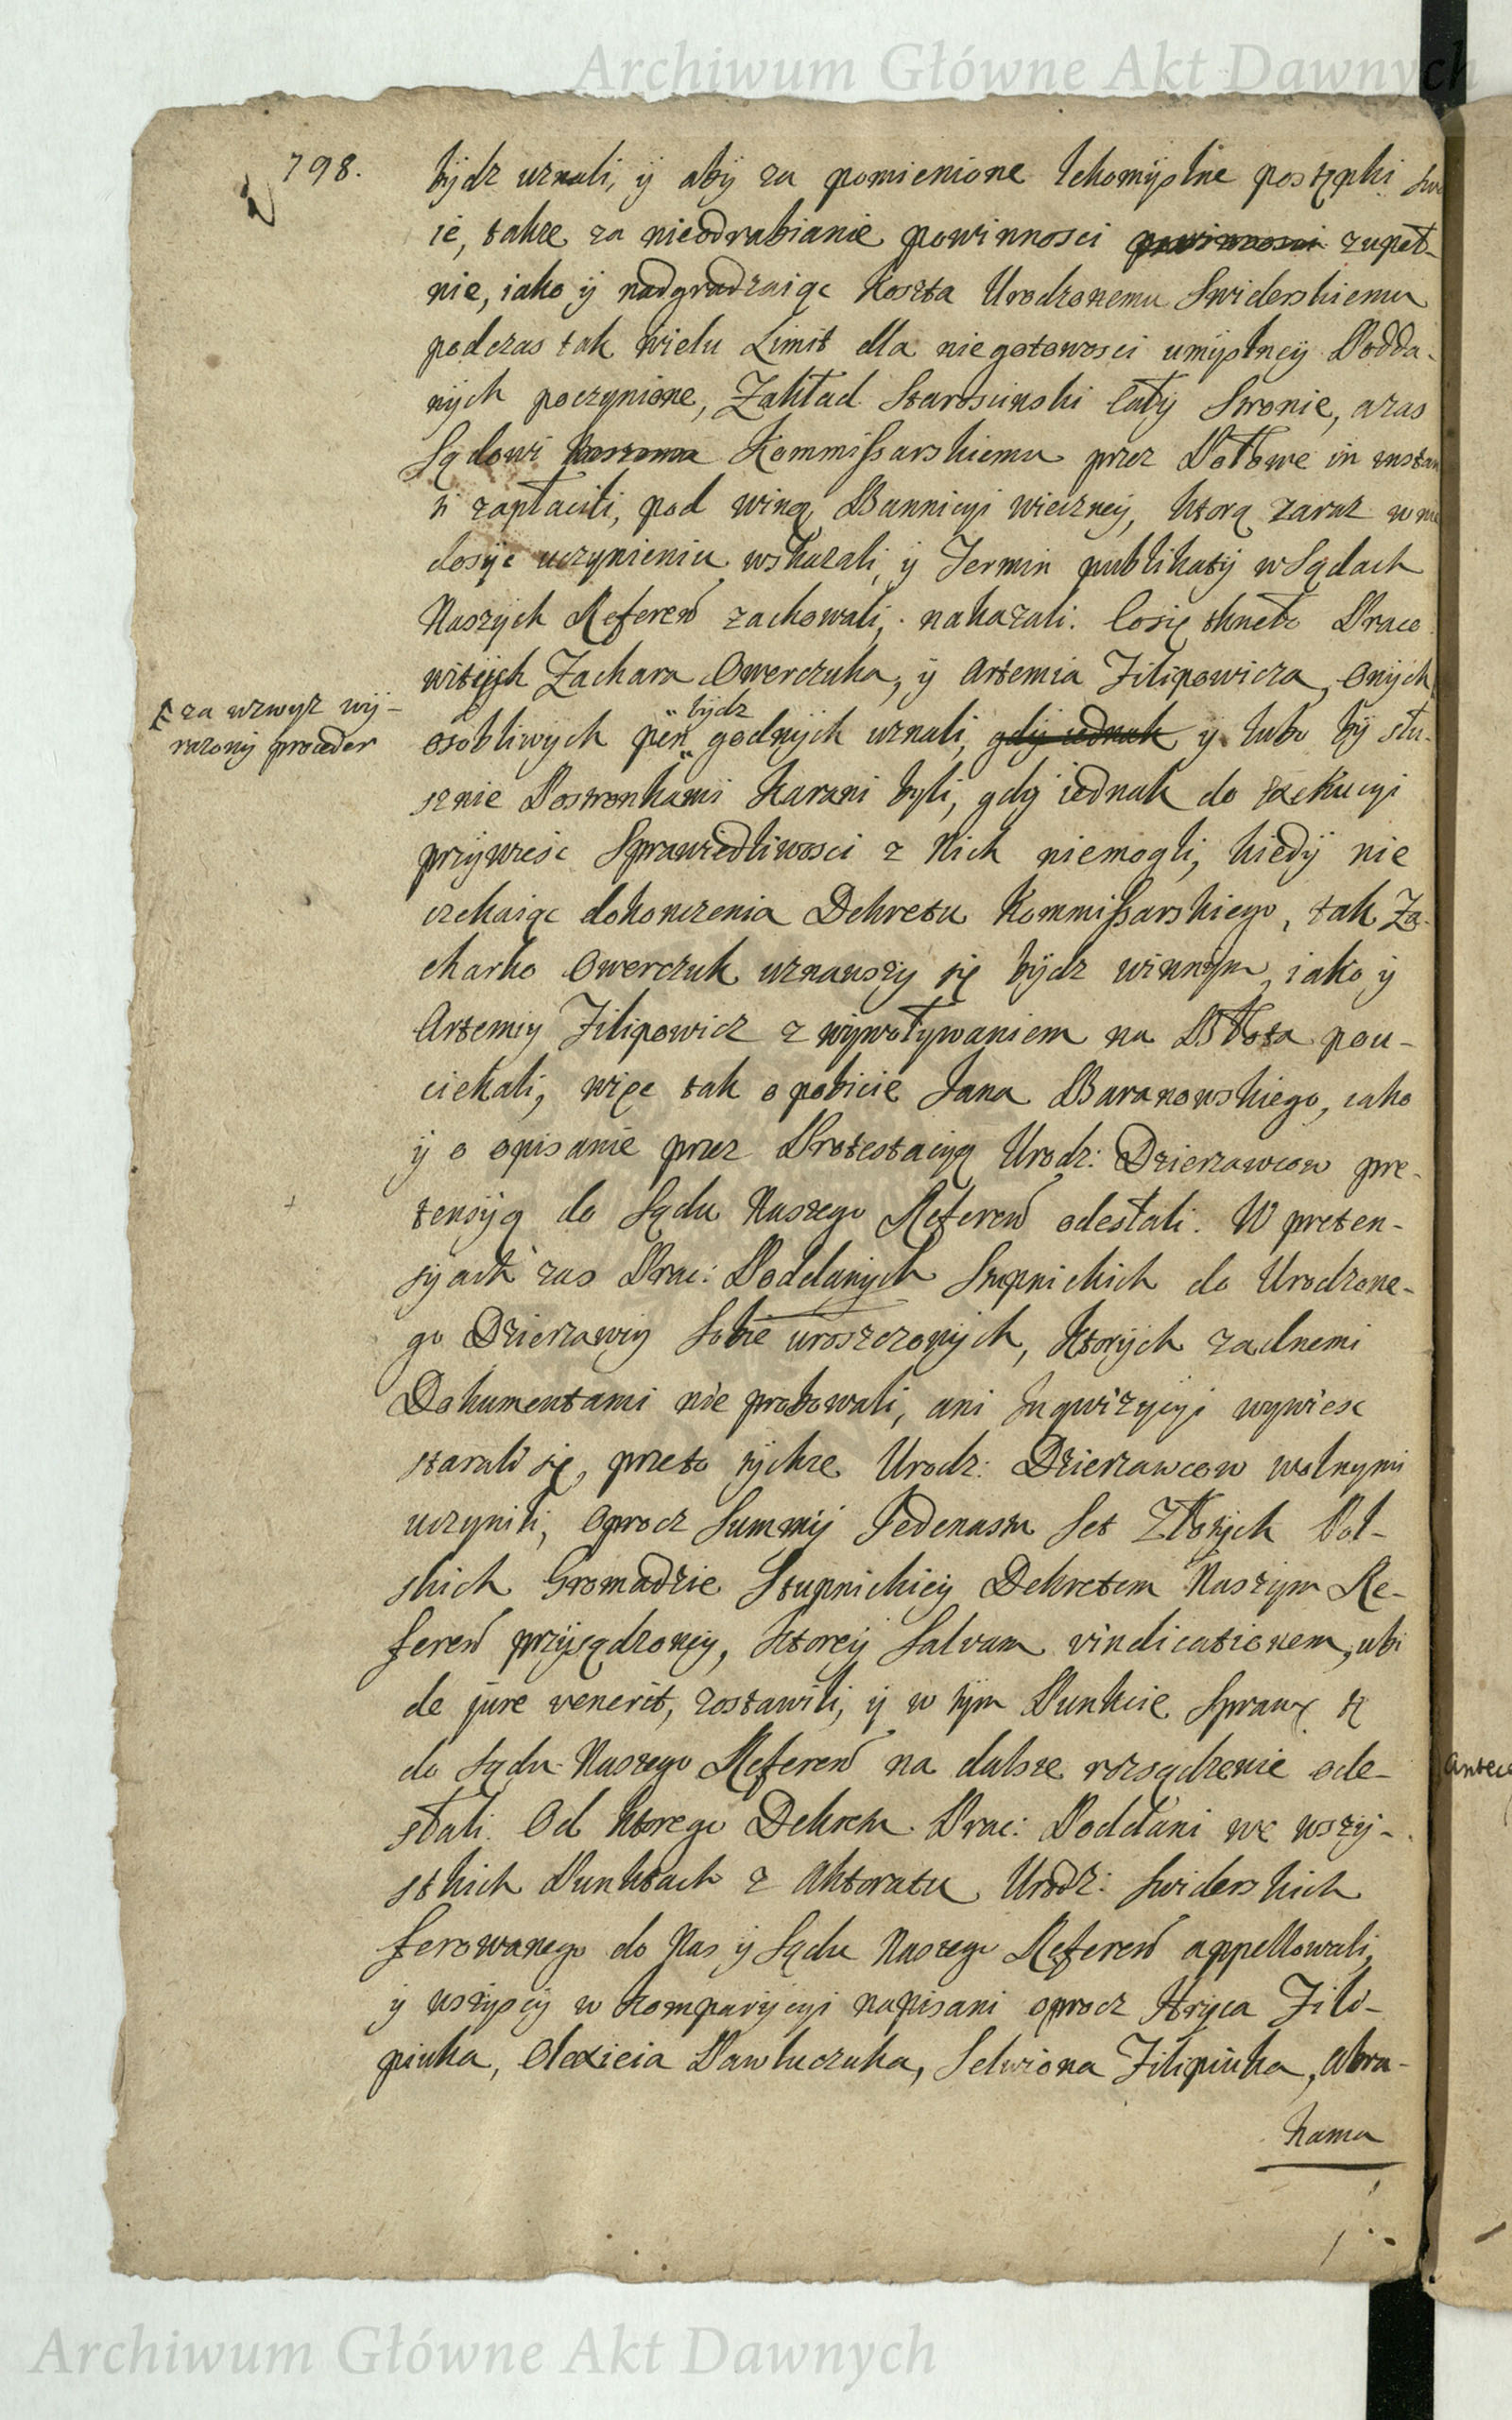 Archiwum Główne Akt Dawnych
798.
bydz uznali, ÿ aby za pomienione lekomyslne postępki swo
ie, takze za nieodrabianie powinnosci powinnosci zupeł-
nie, iako ÿ nadgradzaiąc Koszta Urodzonemu Swiderskiemu
podczas tak wielu Limit dla niegotowosci umyslney Podda-
nych poczynione, Zakład Starosciński cały Stronie, a zas
Sądowi Kommissarskiemu przez Połowe in instan
ti zapłacili, pod winą Bannicyi wieczney, ktorą zaraz w nie
dosyc uczynieniu wskazali, ÿ Termin publikaty w Sądach
Naszych Referen zachowali, nakazali. Co się tknęło Praco
witych Zachara Owerczuka, ÿ Artemia Filipowicza, onych
za wzwyz wy-
razony proceder
bydz
osobliwych pen godnych uznali, gdy iednak ÿ lubo by słu-
sznie Postronkami karani byli, gdy iednak do Exekucyi
przywiesc Sprawiedliwosci z Nich niemogli, kiedy nie
czekaiąc dokonczenia Dekretu Kommissarskiego, tak Za-
charko Owerczuk uznawszy się bydz winnym, iako ÿ
Artemiy Filipowicz z wywoływaniem na Błota pou-
ciekali, więc tak o pobicie Jana Baranowskiego, iako
ÿ o opisanie przez Protestacyą Urodz: Dzierzawcow pre-
tensyą do Sądu Naszego Referen odesłali. W preten-
syach zas Prac: Poddanych Stupnickich do Urodzone-
go Dzierzawcy sobie uroszczonych, ktorych zadnemi
Dokumentami nie probowali, ani Inqwizycyi wywiesc
starali się, przeto tychze Urodz: Dzierzawcow wolnymi
uczynili, oprocz Summy Jedenastu Set Złotych Pol-
skich Gromadzie Stupnickiey Dekretem Naszym Re-
feren przysądzoney, ktorey Salvam vindicationem, ubi
de jure venerit, zostawili, ÿ w tym Punkcie Sprawę tę
do Sądu Naszego Referen na dalsze rozsądzenie ode-
słali. Od ktorego Dekretu Prac: Poddani we wszy-
stkich Punktach z Aktoratu Urodz: Swiderskich
ferowanego do Nas ÿ Sądu Naszego Referen appellowali,
ÿ wszyscy w komparycyi napisani oprocz Hryca Fili-
piuka, Olexieia Pawluczuka, Selwiona Filipiuka, Abra-
hama
Archiwum Główne Akt Dawnych